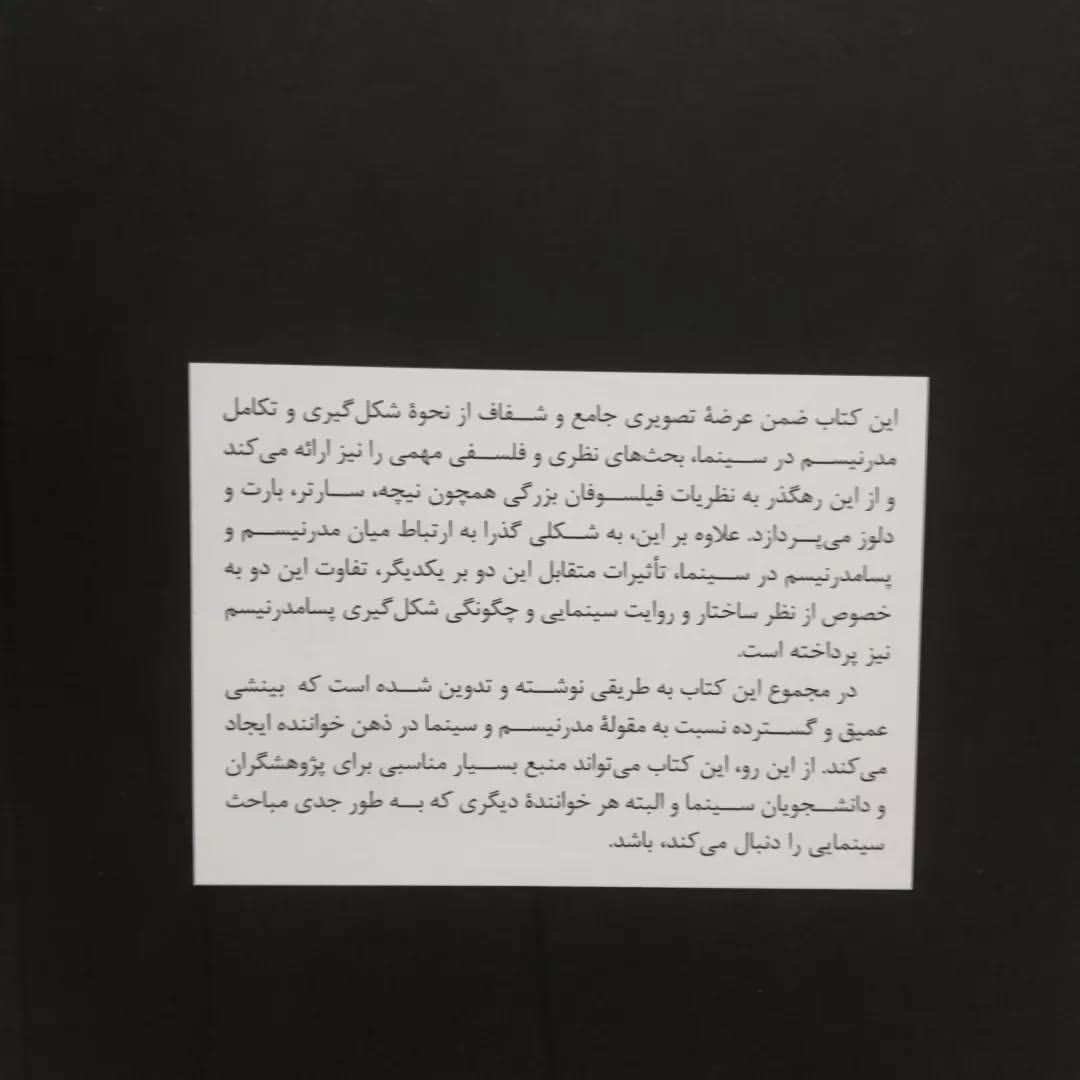 این کتاب ضمن عرضهٔ تصویری جامع و شفاف از نحوهٔ شکل‌گیری و تکامل
مدرنیسم در سینما، بحث‌های نظری و فلسفی مهمی را نیز ارائه می‌کند
و از این رهگذر به نظریات فیلسوفان بزرگی همچون نیچه، سارتر، بارت و
دلوز می‌پردازد. علاوه بر این، به شکلی گذرا به ارتباط میان مدرنیسم و
پسامدرنیسم در سینما، تأثیرات متقابل این دو بر یکدیگر، تفاوت این دو به
خصوص از نظر ساختار و روایت سینمایی و چگونگی شکل‌گیری پسامدرنیسم
نیز پرداخته است.
در مجموع این کتاب به طریقی نوشته و تدوین شده است که بینشی
عمیق و گسترده نسبت به مقولهٔ مدرنیسم و سینما در ذهن خواننده ایجاد
می‌کند. از این رو، این کتاب می‌تواند منبع بسیار مناسبی برای پژوهشگران
و دانشجویان سینما و البته هر خوانندهٔ دیگری که به طور جدی مباحث
سینمایی را دنبال می‌کند، باشد.